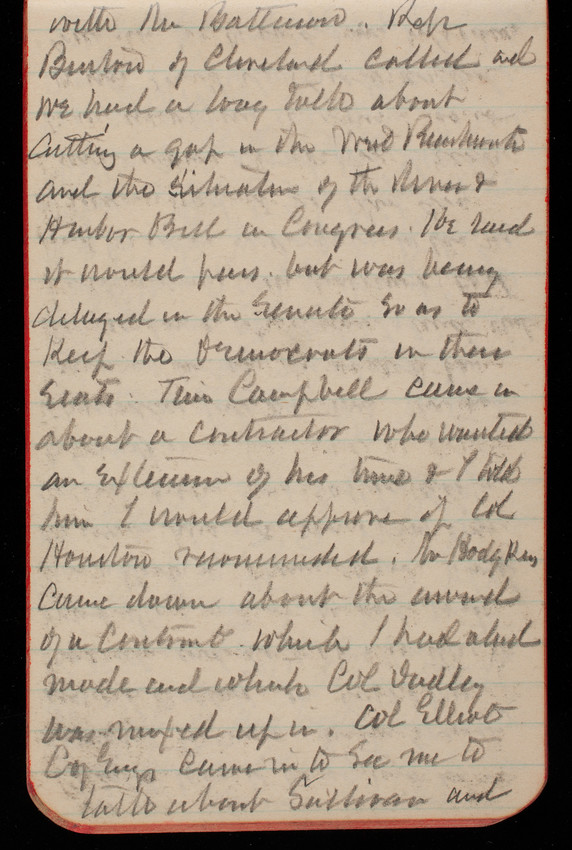 with Mr Batterson. Rep
Burton of Cleveland called and
we had a long talk about
cutting a gap in the West Breakwater
and the situation of the River &
Harbor Bill in Congress. He said
it would pass. but was being
delayed in the Senate so as to
Keep the Democrats in their
Seats. Tim Campbell came in
about a contractor who wanted
an Extension of his time & I told
him I would approve if Col
Houston recommended. Mr Hodgkins
came down about the award
of a Contract which I had
made and which Col
was mixed up in. Col Elliot
Cp Engs came in to see me to
talk about Sullivan and